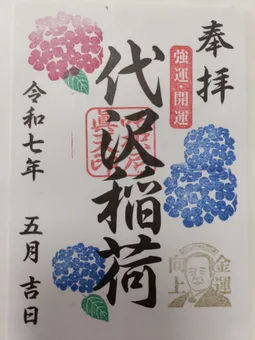 奉拝
強運・開運
代沢稲荷
金運
向上
令和七年 五月 吉日